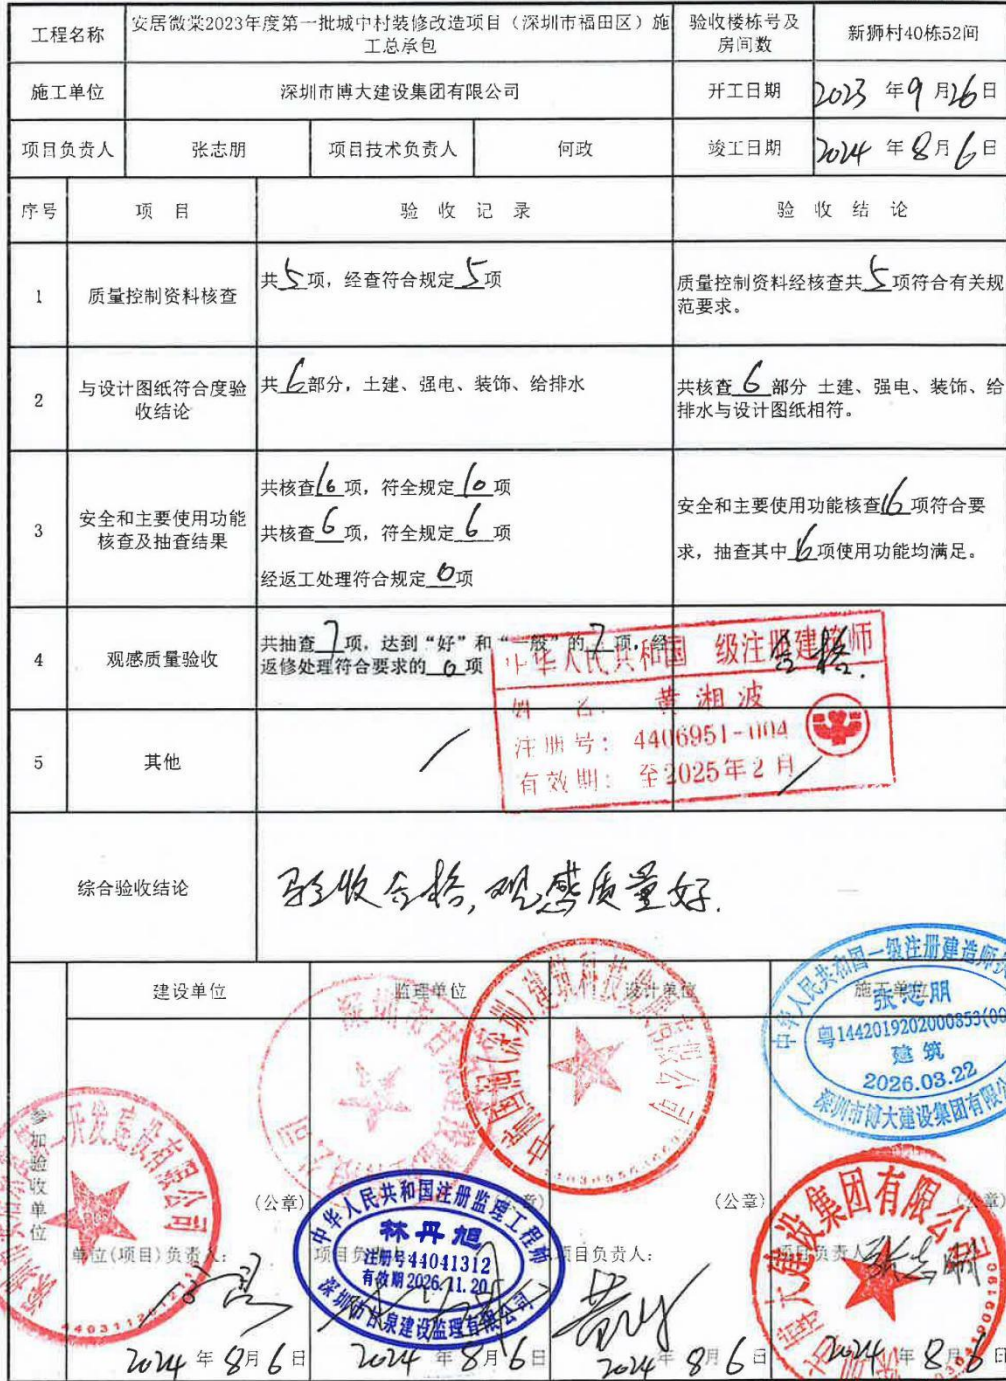 工程名称
安居微棠2023年度第一批城中村装修改造项目（深圳市福田区）施
工总承包
验收楼栋号及
房间数
新狮村40栋52间
施工单位
深圳市博大建设集团有限公司
开工日期
2023 年9月26日
项目负责人
张志朋
项目技术负责人
何政
竣工日期
2024 年8月6日
序号
项 目
验 收 记 录
验 收 结 论
1
质量控制资料核查
共5项，经查符合规定5项
质量控制资料经核查共5项符合有关规
范要求。
2
与设计图纸符合度验
收结论
共6部分，土建、强电、装饰、给排水
共核查6部分 土建、强电、装饰、给
排水与设计图纸相符。
3
安全和主要使用功能
核查及抽查结果
共核查10项，符全规定10项
共核查6项，符全规定6项
经返工处理符合规定0项
安全和主要使用功能核查16项符合要
求，抽查其中16项使用功能均满足。
4
观感质量验收
共抽查7项，达到“好”和“一般”的7项，经
返修处理符合要求的0项
合格.
中华人民共和国 级注册建筑师
姓 名：黄湘波
注册号：4406951-004
有效期：至2025年2月
5
其他
综合验收结论
验收合格，观感质量好.
参加验收单位
建设单位
监理单位
设计单位
施工单位
中华人民共和国一级注册建造师
张志朋
粤1442019202000853(00
建筑
2026.03.22
深圳市博大建设集团有限公
开发建设有限公司
(深圳)建筑科技发展有限公司
大建设集团有限公
(公章)
(公章)
(公章)
中华人民共和国注册监理工程师
林丹旭
注册号44041312
有效期2026.11.20
深圳市甘泉建设监理有限公司
单位(项目)负责人：
项目负责人：
项目负责人：
张志朋
2024 年8月6日
2024 年8月6日
2024 年8月6日
2024 年8月6日